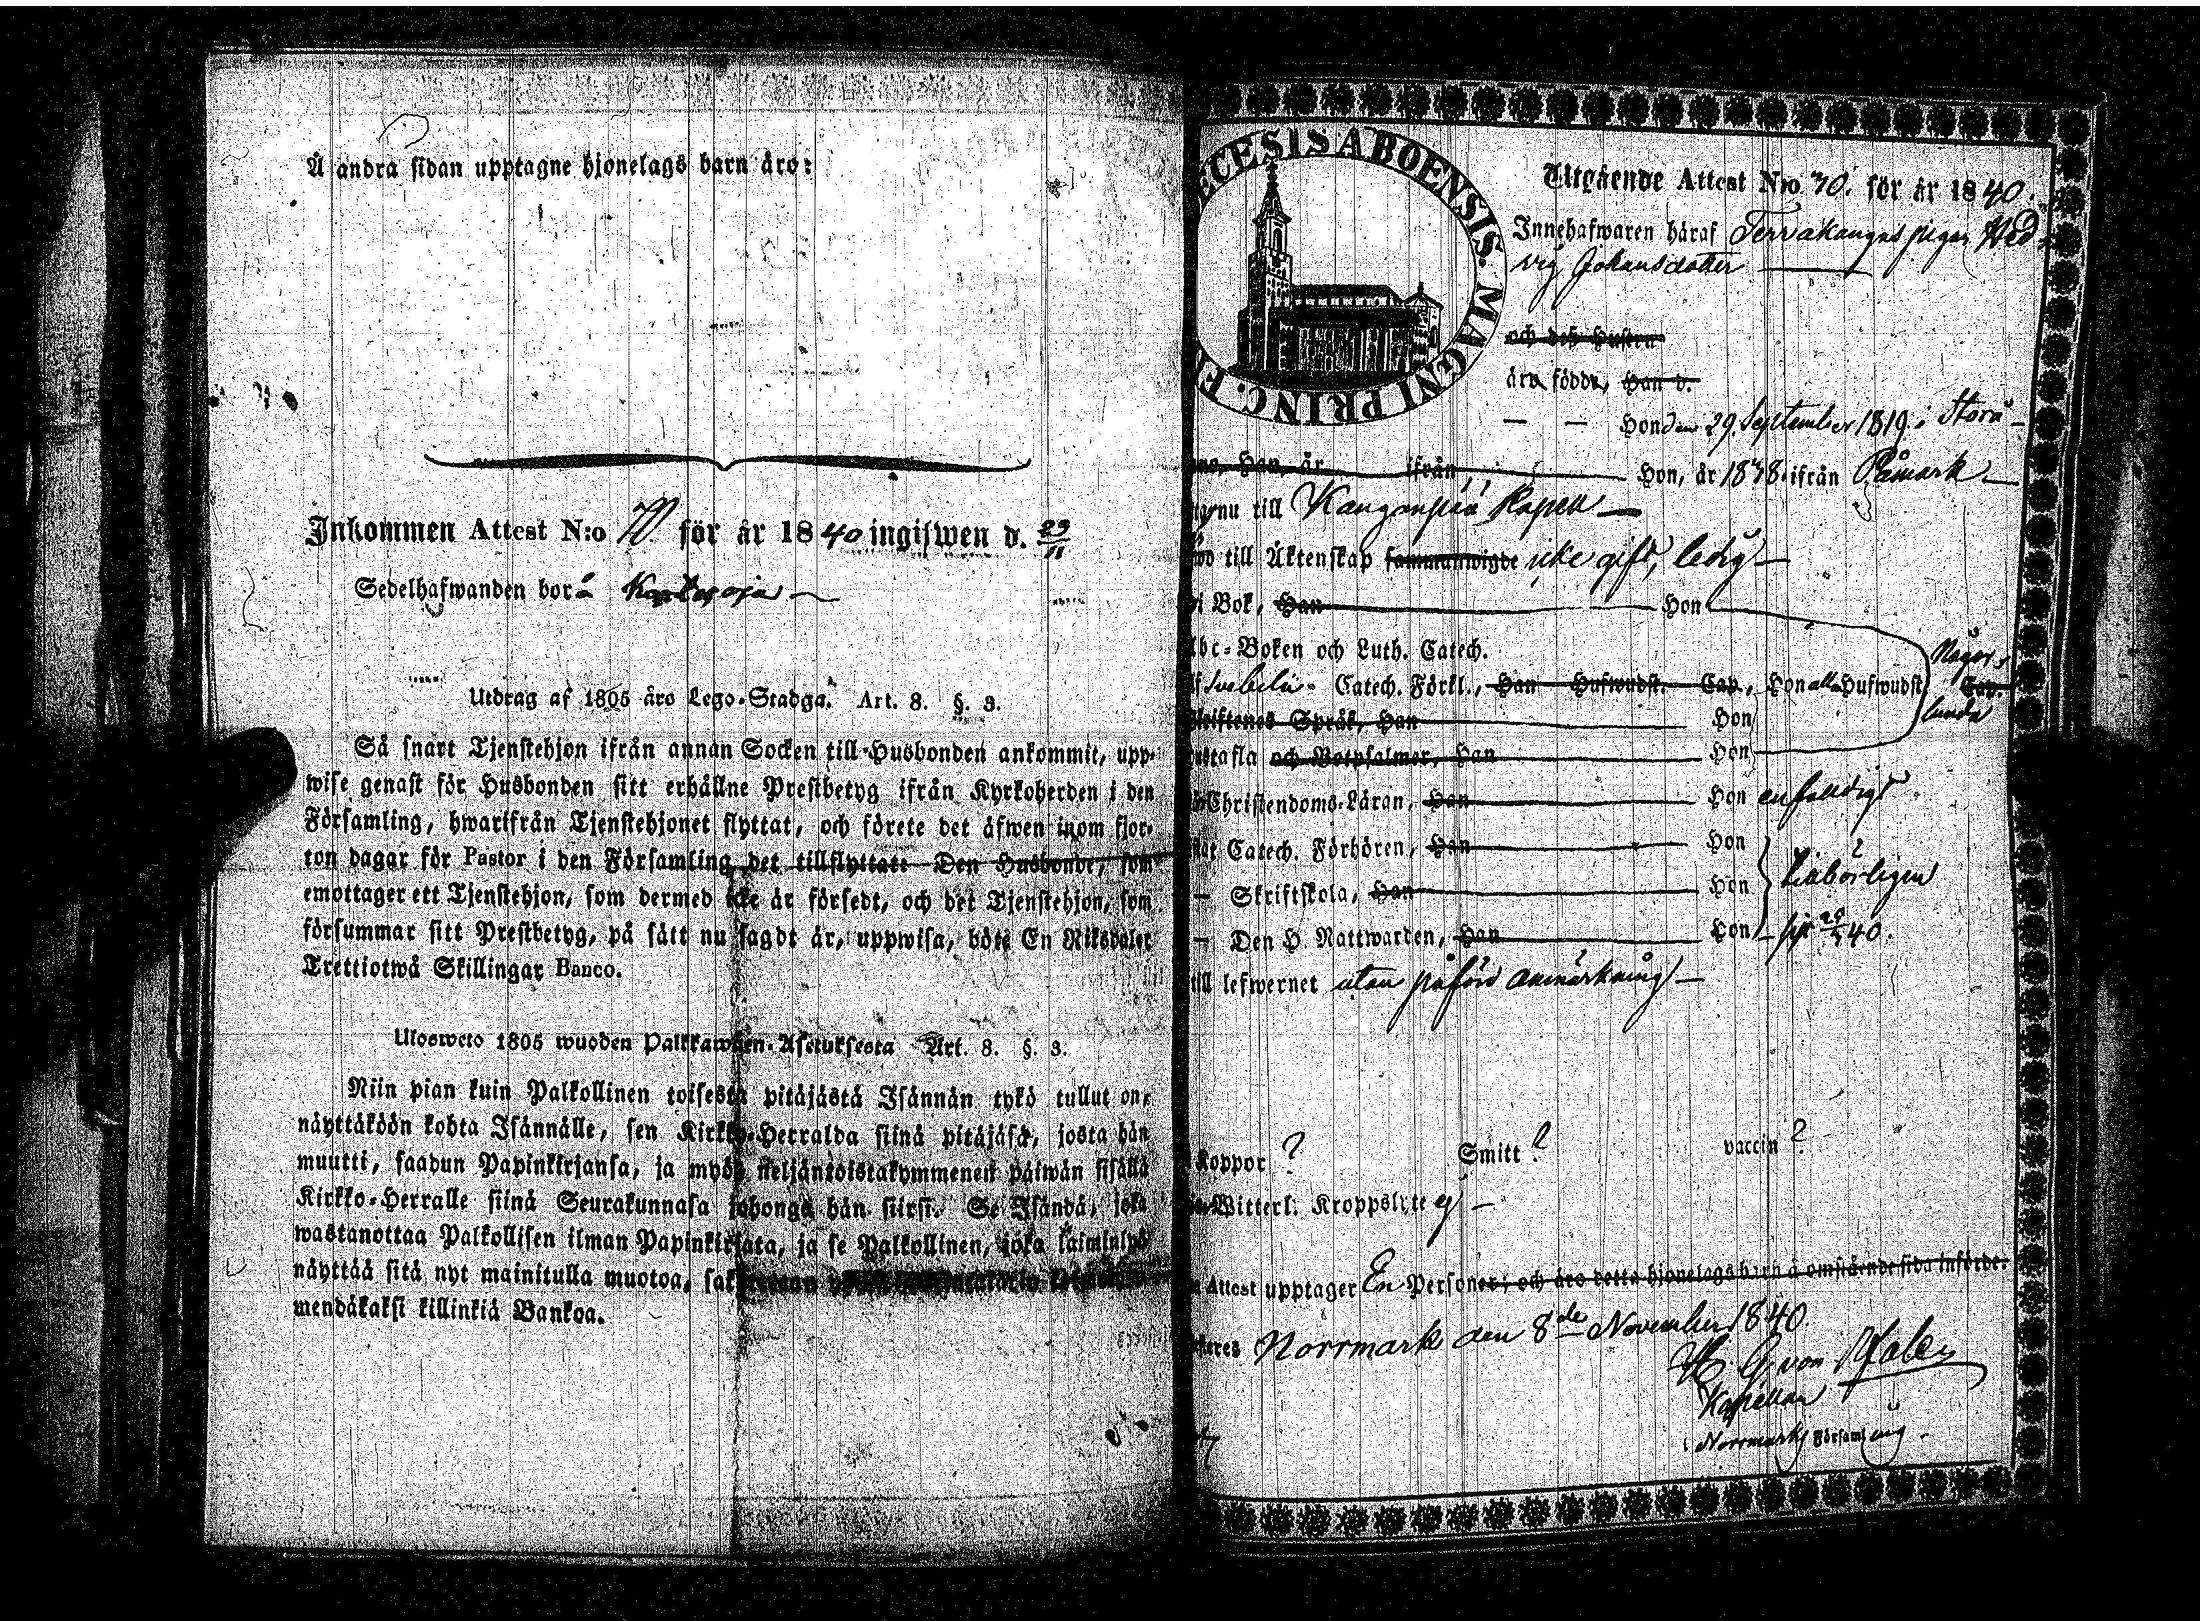 Å andra sidan upptagne hjonelags barn äro:
Inkommen Attest N:o 70 för år 1840 ingifwen d. 29/11
Sedelhafwanden bor å
Utdrag af 1805 åro Lego-Stadga. Art. 8. §. 3.
Så snart Tjenstehjon ifrån annan Socken till Husbonden ankommit, upp-
wise genast för Husbonden sitt erhållne Prestbetyg ifrån Kyrkoherden i den
Församling, hwarifrån Tjenstehjonet flyttat, och förete det äfwen inom fjor-
ton dagar för Pastor i den Församling det tillflyttat: Den Husbonde, som
emottager ett Tjenstehjon, som dermed icke är försedt, och det Tjenstehjon, som
försummar sitt Prestbetyg, på sätt nu sagdt är, uppwisa, böte En Riksdaler
Trettiotwå Skillingar Banco.
Ulosweto 1805 wuoden Palkkawäen-Asetuksesta Art. 8. §. 3.
Niin pian kuin Palkollinen toisesta pitäjästä Isännän tykö tullut on,
näyttäköön kohta Isännälle, sen Kirkko-Herralda siinä pitäjäsä, josta hän
muutti, saadun Papinkirjansa, ja myös neljäntoistakymmenen päiwän sisällä
Kirkko-Herralle siinä Seurakunnasa johonga hän siirsi. Se Isändä, joka
wastanottaa Palkollisen ilman Papinkirjata, ja se Palkollinen, joka laiminlyö
näyttää sitä nyt mainitulla muotoa,
mendäkaksi killinkiä Bankoa.
ECESIS ABOENSIS. MAGNI PRINC. F
Utgående Attest N:o 70. för år 1840.
Innehafwaren häraf Torrakangas pigan Hed-
vig Johansdotter
och dess Hustru
äro födde, Han d.
Hon den 29 September 1819 i Storå
Han, år ifrån Hon, år 1838 ifrån Påmark
nu till Kangonpää Kapell
till Äktenskap sammanwigde icke gift, ledig
i Bok, Han Hon
Abc-Boken och Luth. Catech.
Svebelii Catech. Förkl., Han Hufwudst. Cap., Hon alla Hufwudst. Cap. Någor-
lunda
Skriftenes Språk, Han Hon
Hustafla och Botpsalmer, Han Hon
Christendoms-Läran, Han Hon enfaldigt
Catech. Förhören, Han Hon
Skriftskola, Han Hon tillbörligen
Den H. Nattwarden, Han Hon
till lefwernet utan påförd anmärkning
Koppor ? Smitt ? vaccin ?
Witterl. Kroppslyte ej
Attest upptager En Personer, och äro detta hjonelags barn å omstående sida införde.
Norrmark den 8de November 1840.
H. G. von
Kapellan
i Norrmarks Församling.